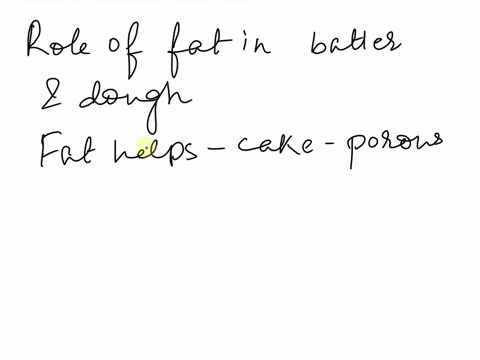 Role of fat in batter
& dough
Fat helps - cake - porous